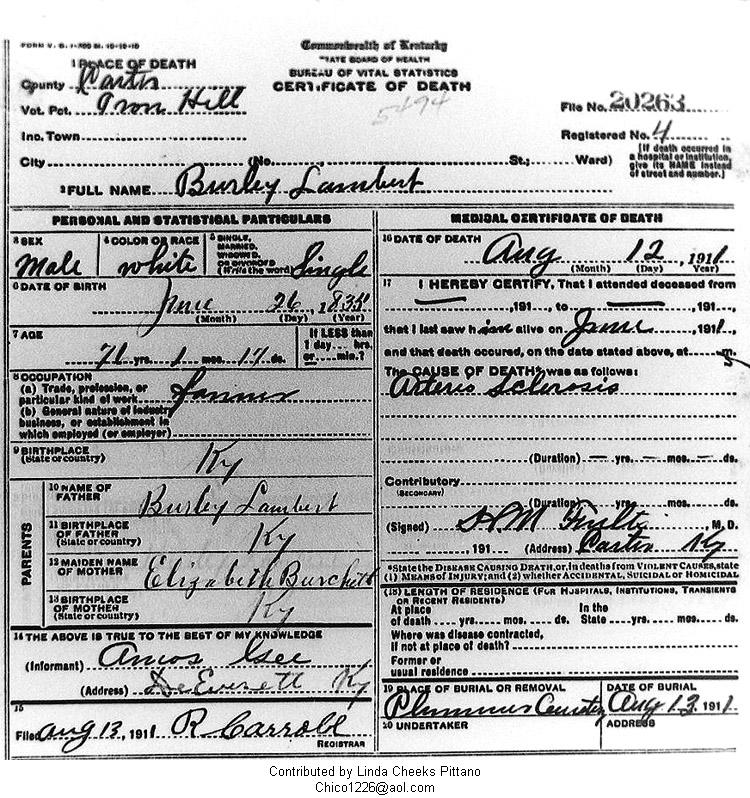 FORM V. S. 1-300 M. 10-10-10
Commonwealth of Kentucky
STATE BOARD OF HEALTH
BUREAU OF VITAL STATISTICS
CERTIFICATE OF DEATH
5494
1 PLACE OF DEATH
County Carter
Vot. Pct. Iron Hill
Inc. Town
City (No. St.; Ward)
File No. 20263
Registered No. 4
[If death occurred in
a hospital or institution,
give its NAME instead
of street and number.]
2 FULL NAME Burley Lambert
PERSONAL AND STATISTICAL PARTICULARS
3 SEX
Male
4 COLOR OR RACE
White
5 SINGLE,
MARRIED,
WIDOWED,
OR DIVORCED
(Write the word) Single
6 DATE OF BIRTH
June 26, 1835
(Month) (Day) (Year)
7 AGE
71 yrs. 1 mos. 17 ds.
If LESS than
1 day, hrs.
or min.?
8 OCCUPATION
(a) Trade, profession, or
particular kind of work Farmer
(b) General nature of industry
business, or establishment in
which employed (or employer)
9 BIRTHPLACE
(State or country) Ky
PARENTS
10 NAME OF
FATHER Burley Lambert
11 BIRTHPLACE
OF FATHER
(State or country) Ky
12 MAIDEN NAME
OF MOTHER Elizabeth Burchett
13 BIRTHPLACE
OF MOTHER
(State or country) Ky
14 THE ABOVE IS TRUE TO THE BEST OF MY KNOWLEDGE
(Informant) Amos Gee
(Address) Everett Ky
15
Filed Aug 13, 1911 R Carroll
REGISTRAR
MEDICAL CERTIFICATE OF DEATH
16 DATE OF DEATH
Aug 12, 1911
(Month) (Day) (Year)
17 I HEREBY CERTIFY, That I attended deceased from
, 191 , to , 191 ,
that I last saw him alive on June , 1911,
and that death occured, on the date stated above, at m.
The CAUSE OF DEATH* was as follows:
Arterio Sclerosis
(Duration) yrs. mos. ds.
Contributory
(SECONDARY)
(Duration) yrs. mos. ds.
(Signed) M. D.
191 (Address) Carter Ky
*State the DISEASE CAUSING DEATH, or, in deaths from VIOLENT CAUSES, state
(1) MEANS OF INJURY; and (2) whether ACCIDENTAL, SUICIDAL or HOMICIDAL
(18) LENGTH OF RESIDENCE (FOR HOSPITALS, INSTITUTIONS, TRANSIENTS
OR RECENT RESIDENTS)
At place In the
of death yrs. mos. ds. State yrs. mos. ds.
Where was disease contracted,
if not at place of death?
Former or
usual residence
19 PLACE OF BURIAL OR REMOVAL
Plummer Cemetery
DATE OF BURIAL
Aug 13, 1911
20 UNDERTAKER
ADDRESS
Contributed by Linda Cheeks Pittano
Chico1226@aol.com